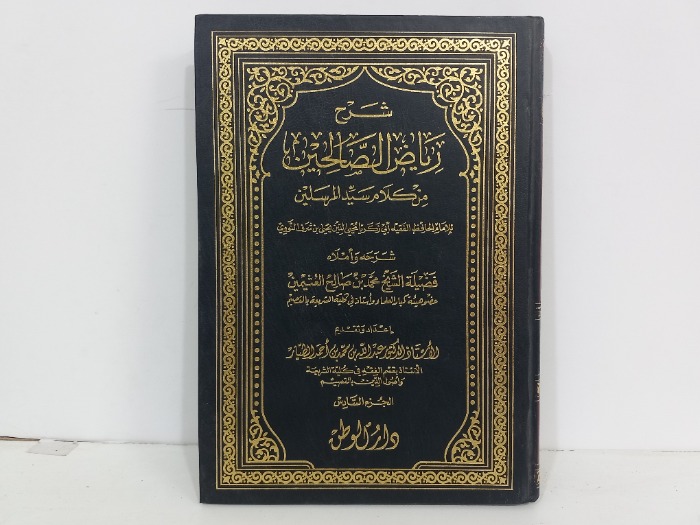 شرح
رياض الصالحين
من كلام سيد المرسلين
للإمام الحافظ الفقيه أبي زكريا محيي الدين يحيى بن شرف النووي
شرحه وأملاه
فضيلة الشيخ محمد بن صالح العثيمين
عضو هيئة كبار العلماء وأستاذ في كلية الشريعة بالقصيم
إعداد وتقديم
الأستاذ الدكتور عبد الله بن محمد بن أحمد الطيار
الأستاذ بقسم الفقه في كلية الشريعة
وأصول الدين بالقصيم
الجزء السادس
دار الوطن